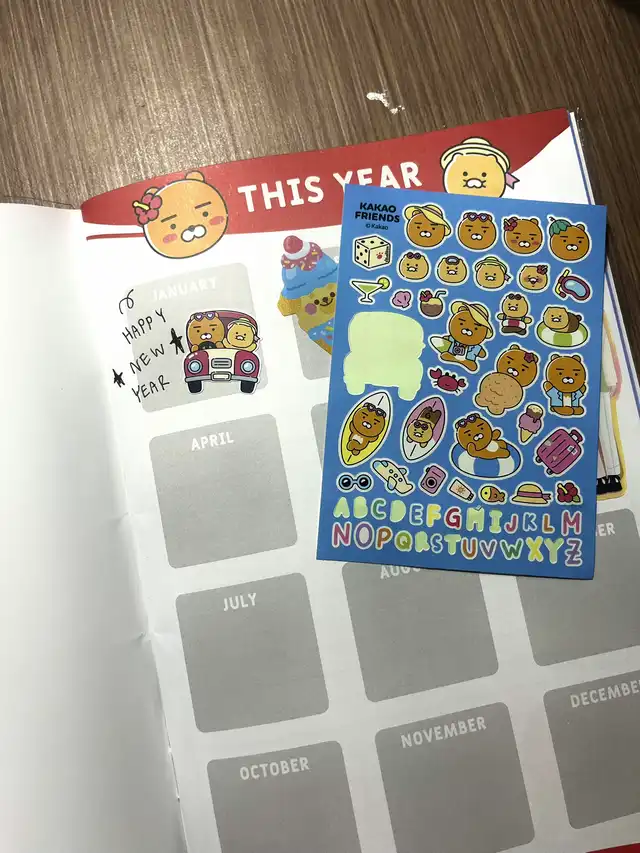 THIS YEAR
JANUARY
HAPPY
NEW
YEAR
KAKAO
FRIENDS
© Kakao
ABCDEFGHIJKLM
NOPQRSTUVWXYZ
APRIL
JULY
OCTOBER
NOVEMBER